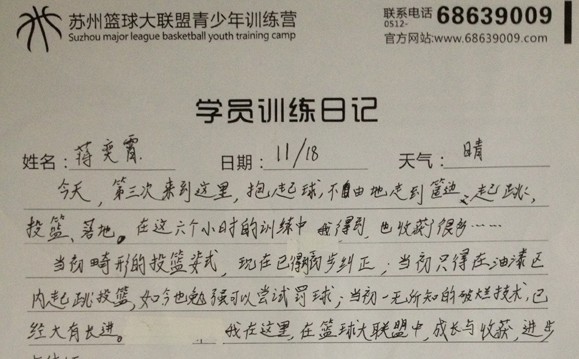 苏州篮球大联盟青少年训练营
Suzhou major league basketball youth training camp
联系电话 0512- 68639009
官方网站:www.68639009.com
学员训练日记
姓名: 蒋奕霄 日期: 11/18 天气: 晴
今天,第三次来到这里,抱起球,不自由地走到篮边、起跳,
投篮、落地。在这六个小时的训练中 我得到,也收获了很多……
当初畸形的投篮姿式,现在已得初步纠正;当初只得在油漆区
内起跳投篮,如今也勉强可以尝试罚球;当初一无所知的破烂技术,已
经大有长进。 我在这里,在篮球大联盟中,成长与收获,进步